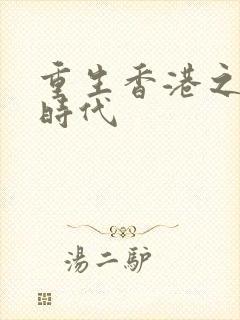 重生香港之
時代
湯二驴